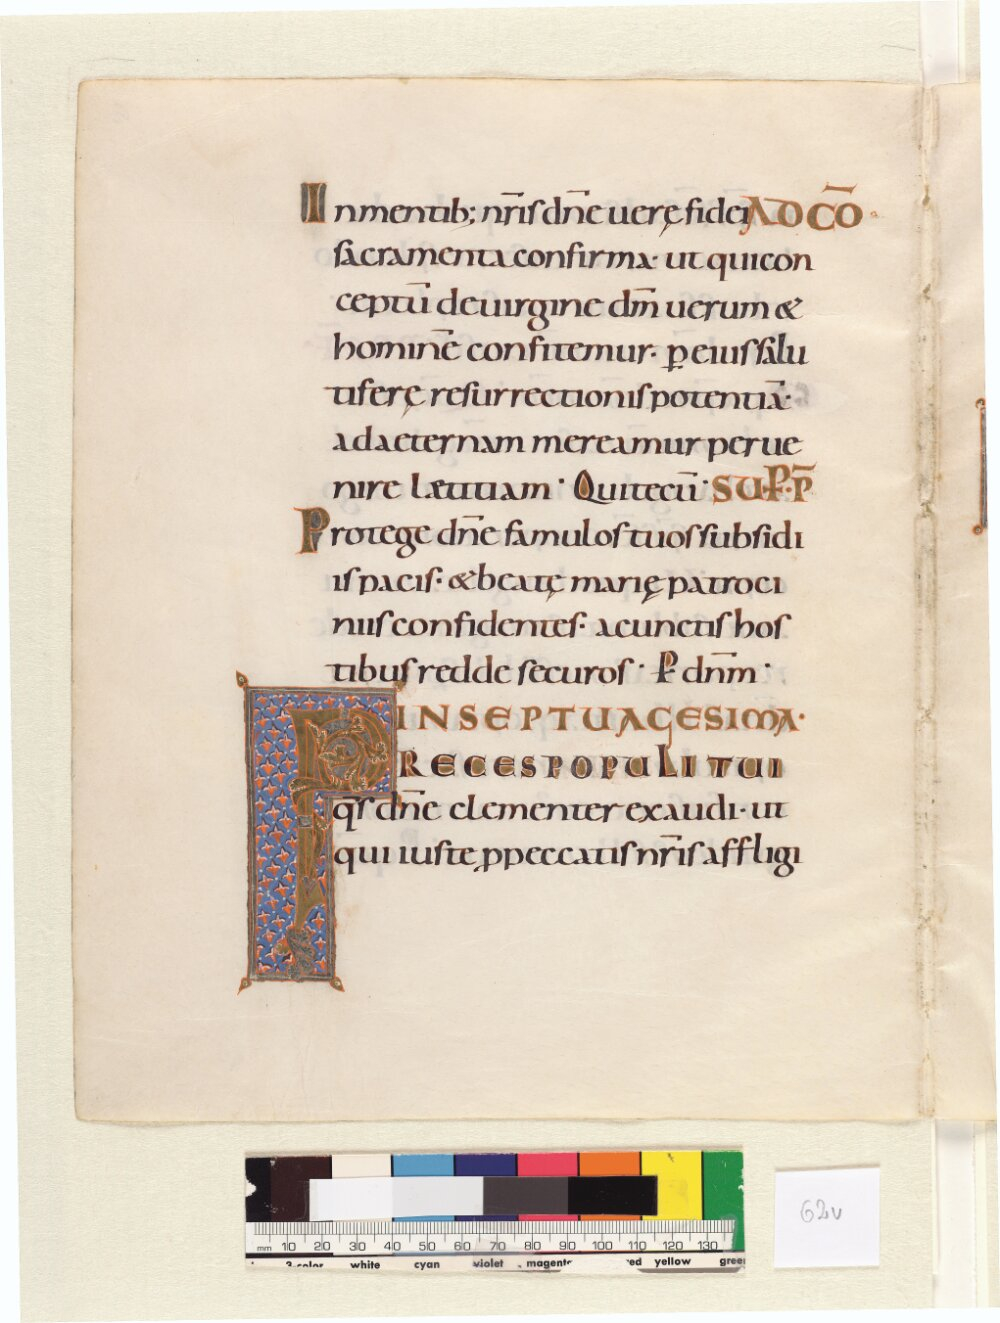 In mentib; nr̄is dn̄e uerę fidei AD CŌ
sacramenta confirma· ut qui con
ceptū de uirgine dm̄ uerum &
hominē confitemur· ꝑ eius salu
tiferę resurrectionis potentiā·
ad aeternam mereamur perue
nire lætitiam· Qui tecū· SUP·P̄
Protege dn̄e famulos tuos subsidi
is pacis· & beatę marię patroci
niis confidentes· a cunctis hos
tibus redde securos· P dn̄m·
IN SEPTUAGESIMA·
PRECES POPULI TUI
qs̄ dn̄e clementer exaudi· ut
qui iuste ꝓ peccatis nr̄is affligi
62v
mm 10 20 30 40 50 60 70 80 90 100 110 120 130
3-color white cyan violet magenta red yellow green